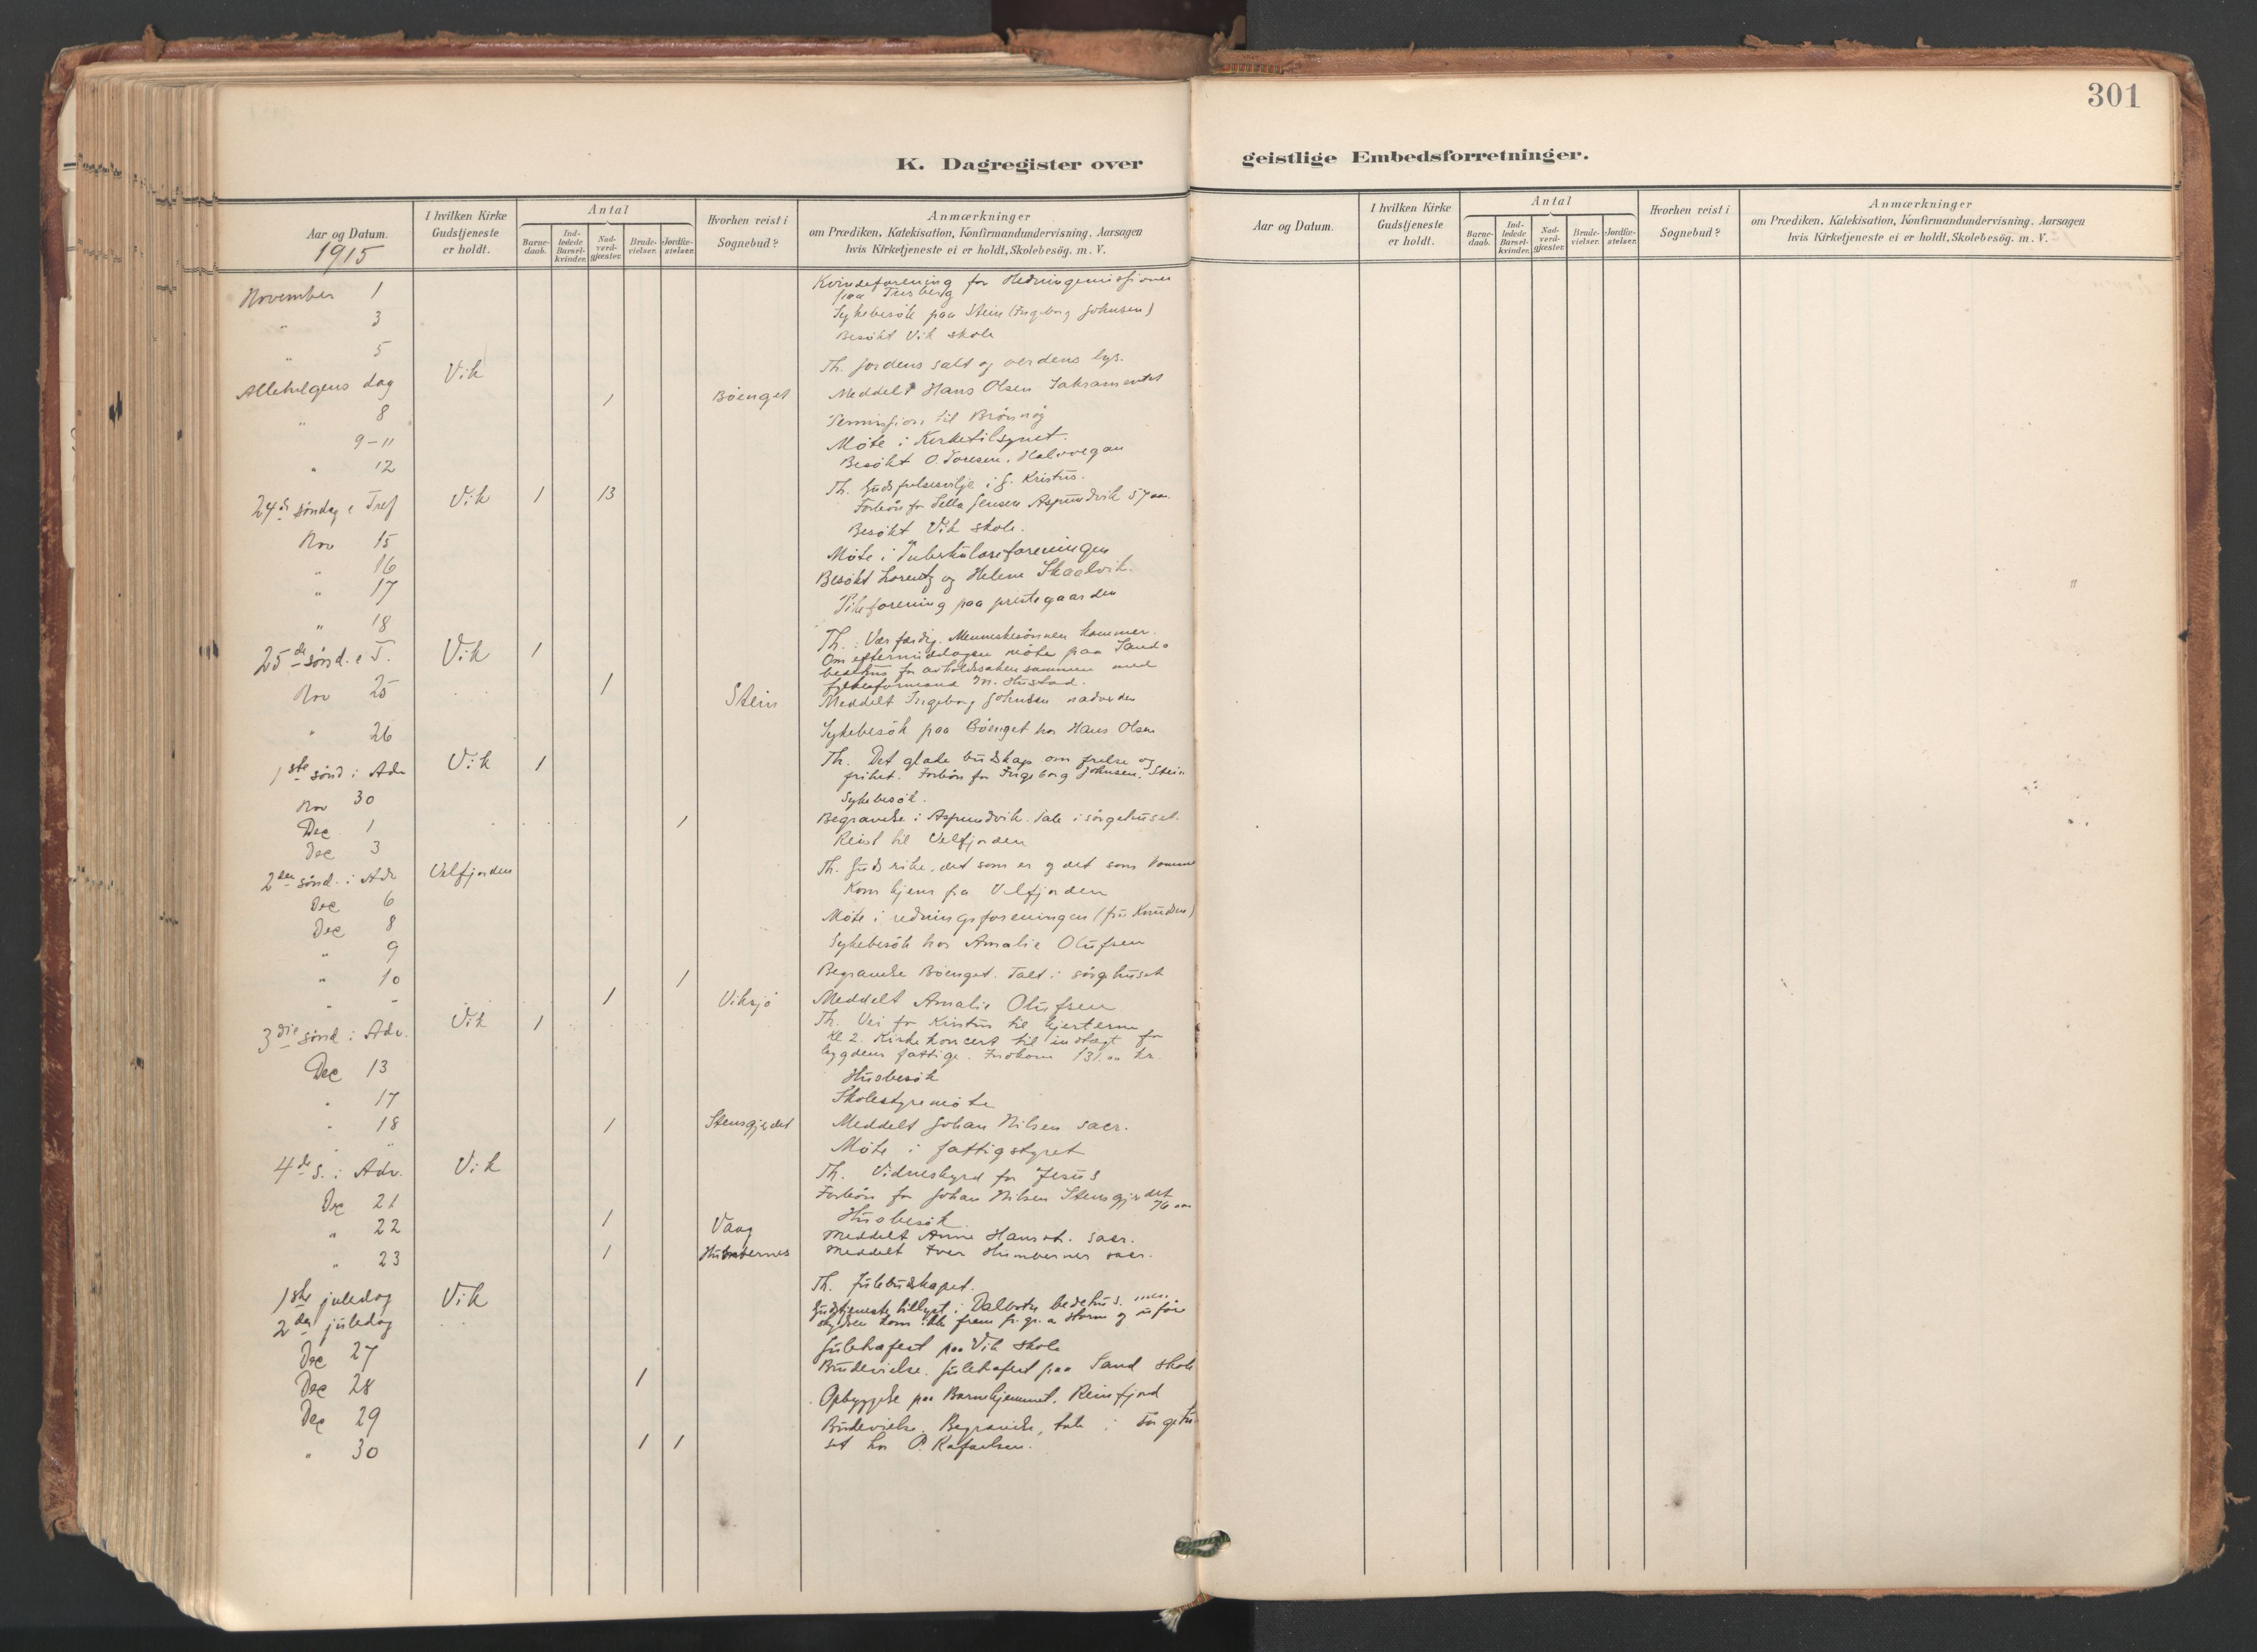 301
K. Dagregister over
geistlige Embedsforretninger.
Aar og Datum.
1915
I hvilken Kirke Gudstjeneste er holdt.
Antal
Barnedaab.
Indledede Barselkvinder.
Nadverdgjæster.
Brudevielser.
Jordfæstelser.
Hvorhen reist i Sognebud?
Anmærkninger
om Prædiken, Katekisation, Konfirmandundervisning, Aarsagen
hvis Kirketjeneste ei er holdt, Skolebesøg. m. V.
November 1 Kvindeforening for Hedningemissionen
paa
" 3 Sykebesøk paa Stein (Ingeborg Johnsen)
" 5 Besøkt Vik skole
Allehelgens dag Vik Th. Jordens salt og verdens lys.
" 8 1 Bøenget Meddelt Hans Olsen Sakramentet
9-11 Permission til Brønnø
" 12 Møte i Kirketilsynet.
Besøkt O. Toresen, Halvvegan
24de søndag e Tref Vik 1 13 Th. Guds frelsesvilje i J. Kristus.
Forbøn for Jensen Aspundvik 57 aar.
Nov 15 Besøkt Vik skole.
" 16 Møte i Tuberkuloseforeningen
" 17 Besøkt Lorentz og Helene Skaalvik.
" 18 Pikeforening paa prestegaarden
25de sønd. e T. Vik 1 Th.: Vær færdig. Menneskesønnen kommer.
Om eftermiddagen møte paa Sands
bedehus for avholdssaken sammen med
fylkesformand M. Hustad.
Nov 25 1 Stein Meddelt Ingeborg Johnsen nadverden
" 26 Sykebesøk paa Bøenget hos Hans Olsen
1ste sønd i Adv Vik 1 Th. Det glade budskap om frelse og
frihet. Forbøn for Ingeborg Johnsen, Stein
Nov 30 Sykebesøk.
Dec. 1 1 Begravelse i Aspundvik. Tale i sørgehuset.
Dec 3 Reist til Velfjorden
2den sønd. i Adv Velfjorden Th. Guds rike, det som er og det som komme
Dec 6 Kom hjem fra Velfjorden
Dec 8 Møte i redningsforeningen (fru Knudsen)
" 9 Sykebesøk hos Amalie Olufsen
" 10 1 Begravelse Bøenget. Talt i sørgehuset
" " 1 Viksjø Meddelt Amalie Olufsen
3die sønd i Adv. Vik 1 Th. Vei for Kristus til hjerterne
Kl 2. Kirkekoncert til indtægt for
bygdens fattige. Indkom 131.00 kr.
Dec 13 Husbesøk
" 17 Skolestyremøte
" 18 1 Stensgjerdet Meddelt Johan Nilsen sacr.
" Møte i fattigstyret
4de s. i Adv. Vik Th. Vidnesbyrd for Jesus
Forbøn for Johan Nilsen Stensgjerdet
76 aar
Dec 21 Husbesøk
" 22 1 Vaag Meddelt Anne Hansd. sacr.
" 23 1 Meddelt Iver sacr.
1ste juledag Vik Th. Julebudskapet.
2den juledag Gudstjeneste tillyst i Dalbotn bedehus. men
skydsen kom ikke frem p. gr. a storm og uføre
Dec 27 Juletræfest paa Vik skole
Dec 28 1 Brudevielse. Juletræfest paa Sand skole
Dec 29 Opbyggelse paa Barnehjemmet, Reinfjord
" 30 1 1 Brudevielse. Begravelse, tale i sørgehu-
set hos P. Rafaelsen.
Aar og Datum.
I hvilken Kirke Gudstjeneste er holdt.
Antal
Barnedaab.
Indledede Barselkvinder.
Nadverdgjæster.
Brudevielser.
Jordfæstelser.
Hvorhen reist i Sognebud?
Anmærkninger
om Prædiken, Katekisation, Konfirmandundervisning, Aarsagen
hvis Kirketjeneste ei er holdt, Skolebesøg. m. V.